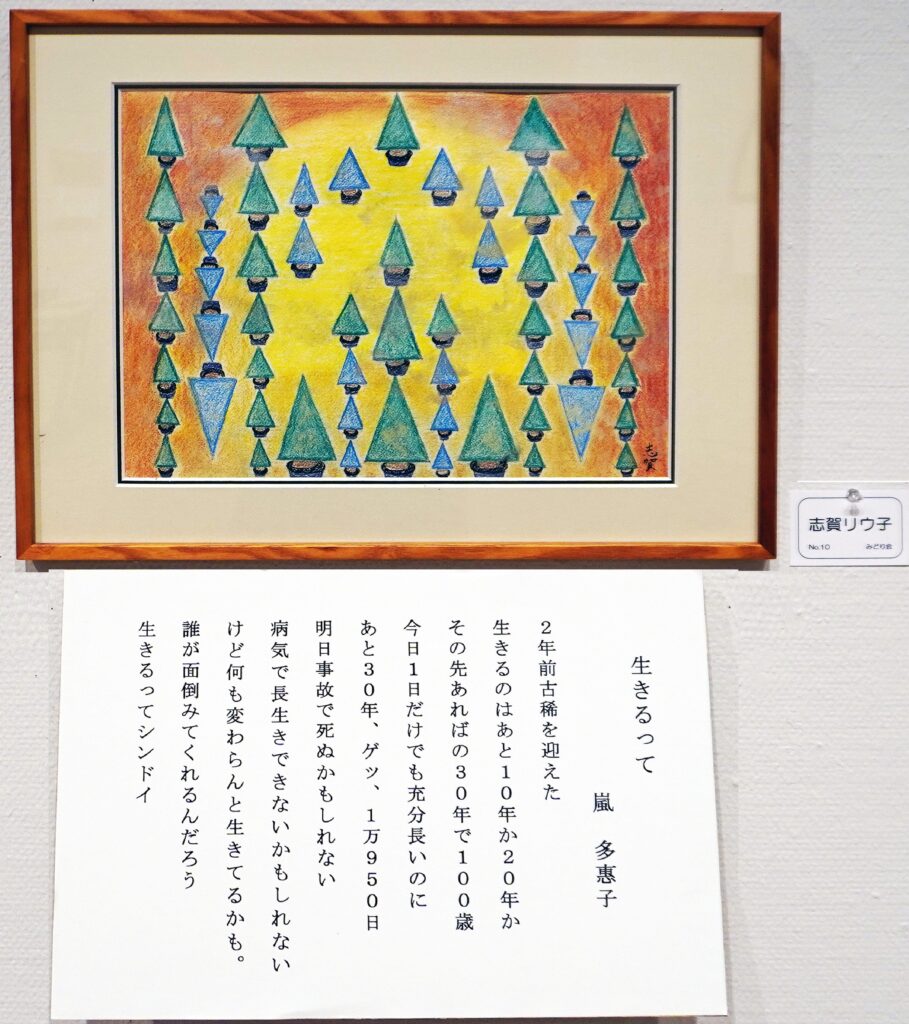 志賀
志賀リウ子
No.10 みどり会
生きるって
嵐 多惠子
2年前古稀を迎えた
生きるのはあと10年か20年か
その先あればの30年で100歳
今日1日だけでも充分長いのに
あと30年、ゲッ、1万950日
明日事故で死ぬかもしれない
病気で長生きできないかもしれない
けど何も変わらんと生きてるかも。
誰が面倒みてくれるんだろう
生きるってシンドイ